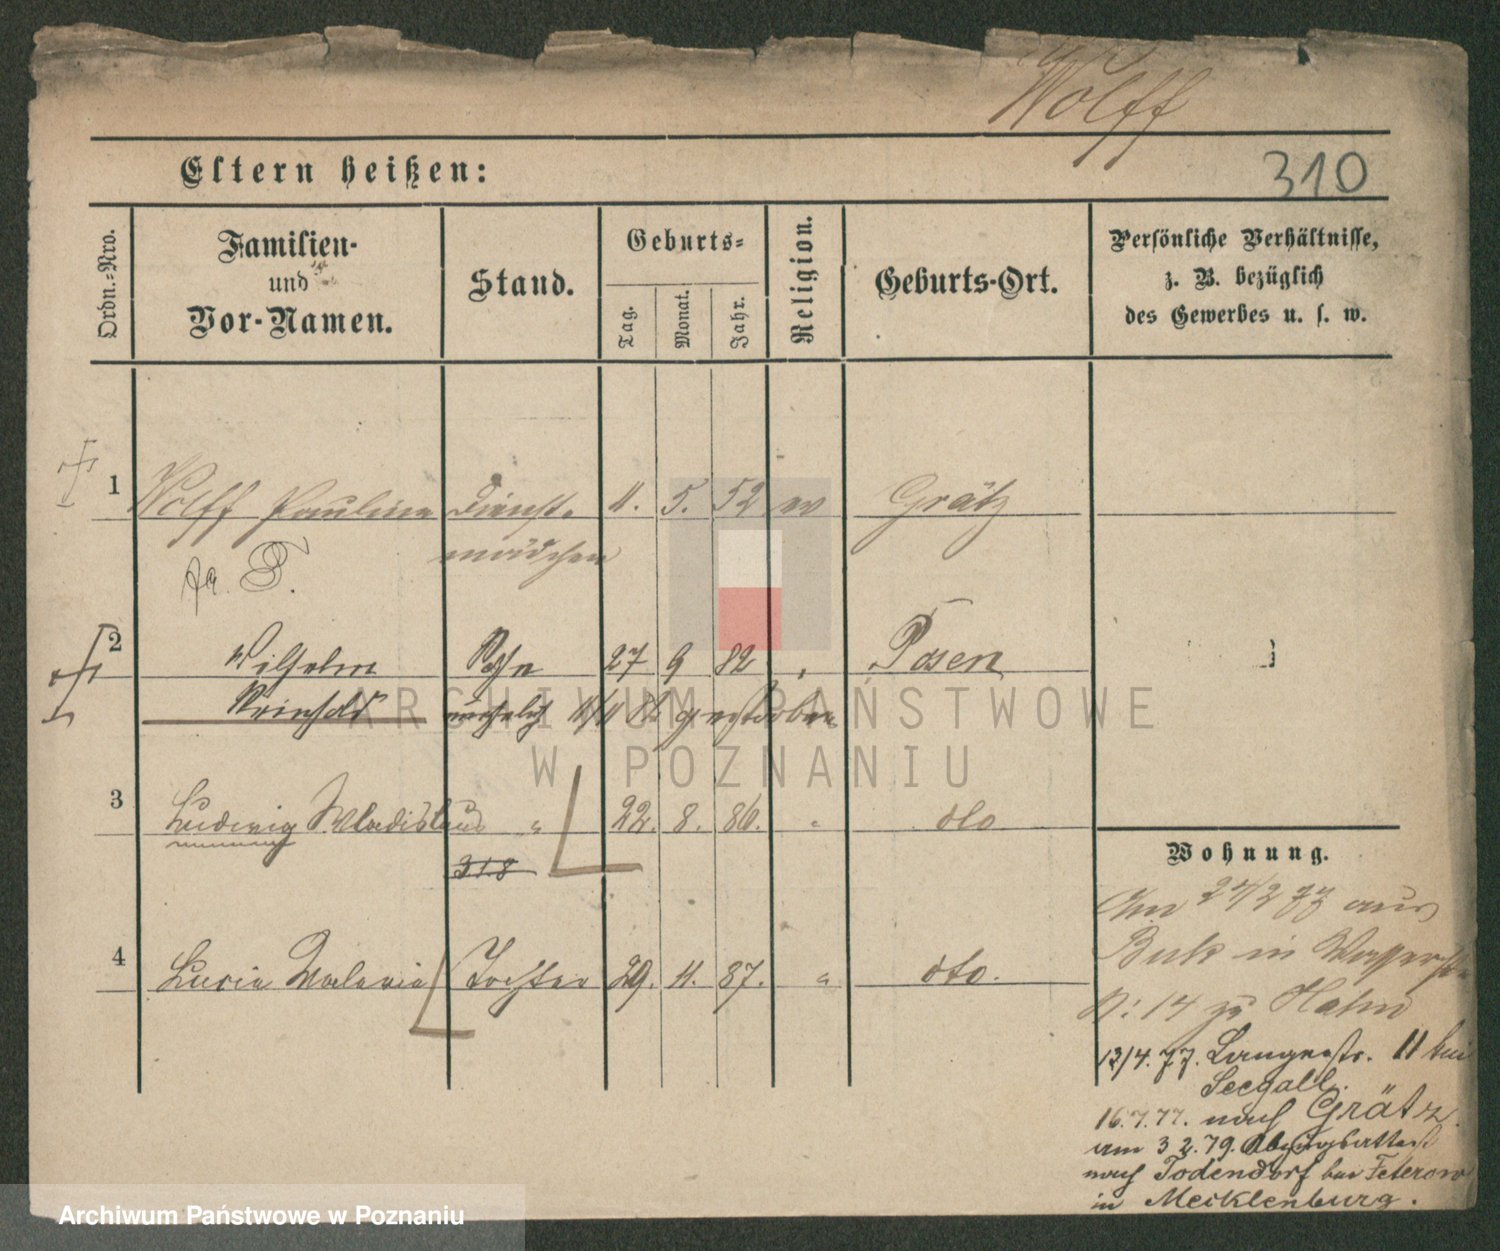 Wolff
Eltern heißen:
310
Ordn.-Nro.
Familien-
und
Vor-Namen.
Stand.
Geburts-
Tag.
Monat.
Jahr.
Religion.
Geburts-Ort.
Persönliche Verhältnisse,
z. B. bezüglich
des Gewerbes u. s. w.
1 Wolff Pauline Dienst- 11. 5. 52 ev Grätz
mädchen
2 Wilhelm Sohn 27 9 82 " Posen
Reinhold unehelich 11/11 82 gestorben
3 Ludwig Wladislaus " 22. 8. 86. " dto
318
4 Lucia Valeria Tochter 29. 11. 87. " dto.
Wohnung.
Am 27/2 77 aus
Buk in Wasserstr
N: 14 zu Hahn
13/4. 77. Langestr. 11 bei
Seegall.
16.7.77. nach Grätz.
am 3 2. 79. Abzugsattest
nach Todendorf bei Teterow
in Mecklenburg.
ARCHIWUM PAŃSTWOWE
W POZNANIU
Archiwum Państwowe w Poznaniu